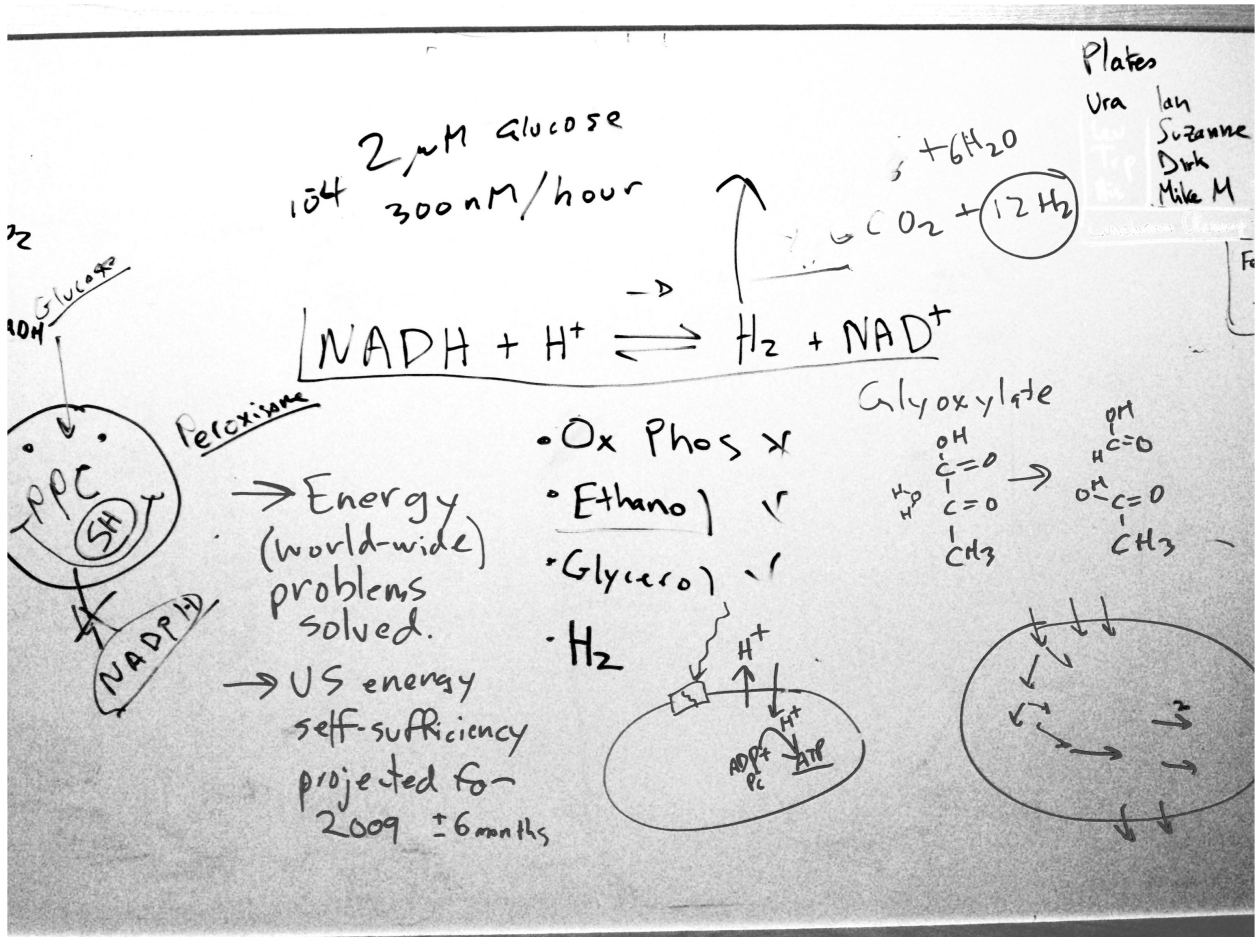 Plates
Ura Ian
Suzanne
Dirk
Mike M
2 µM Glucose
10-4 300 nM/hour
+6H2O
6CO2 + 12 H2
O2
Glucose
ADH
NADH + H+ ⇌ H2 + NAD+
Peroxisome
PPC
SH
NADPH
→ Energy
(world-wide)
problems
solved.
→ US energy
self-sufficiency
projected for
2009 ± 6 months
• Ox Phos x
• Ethanol ✓
• Glycerol ✓
• H2
H+
H+
ADP+ ATP
Pi
Glyoxylate
OH
C=O
C=O
CH3
H O H
→
OH
H C=O
OH C=O
CH3
2